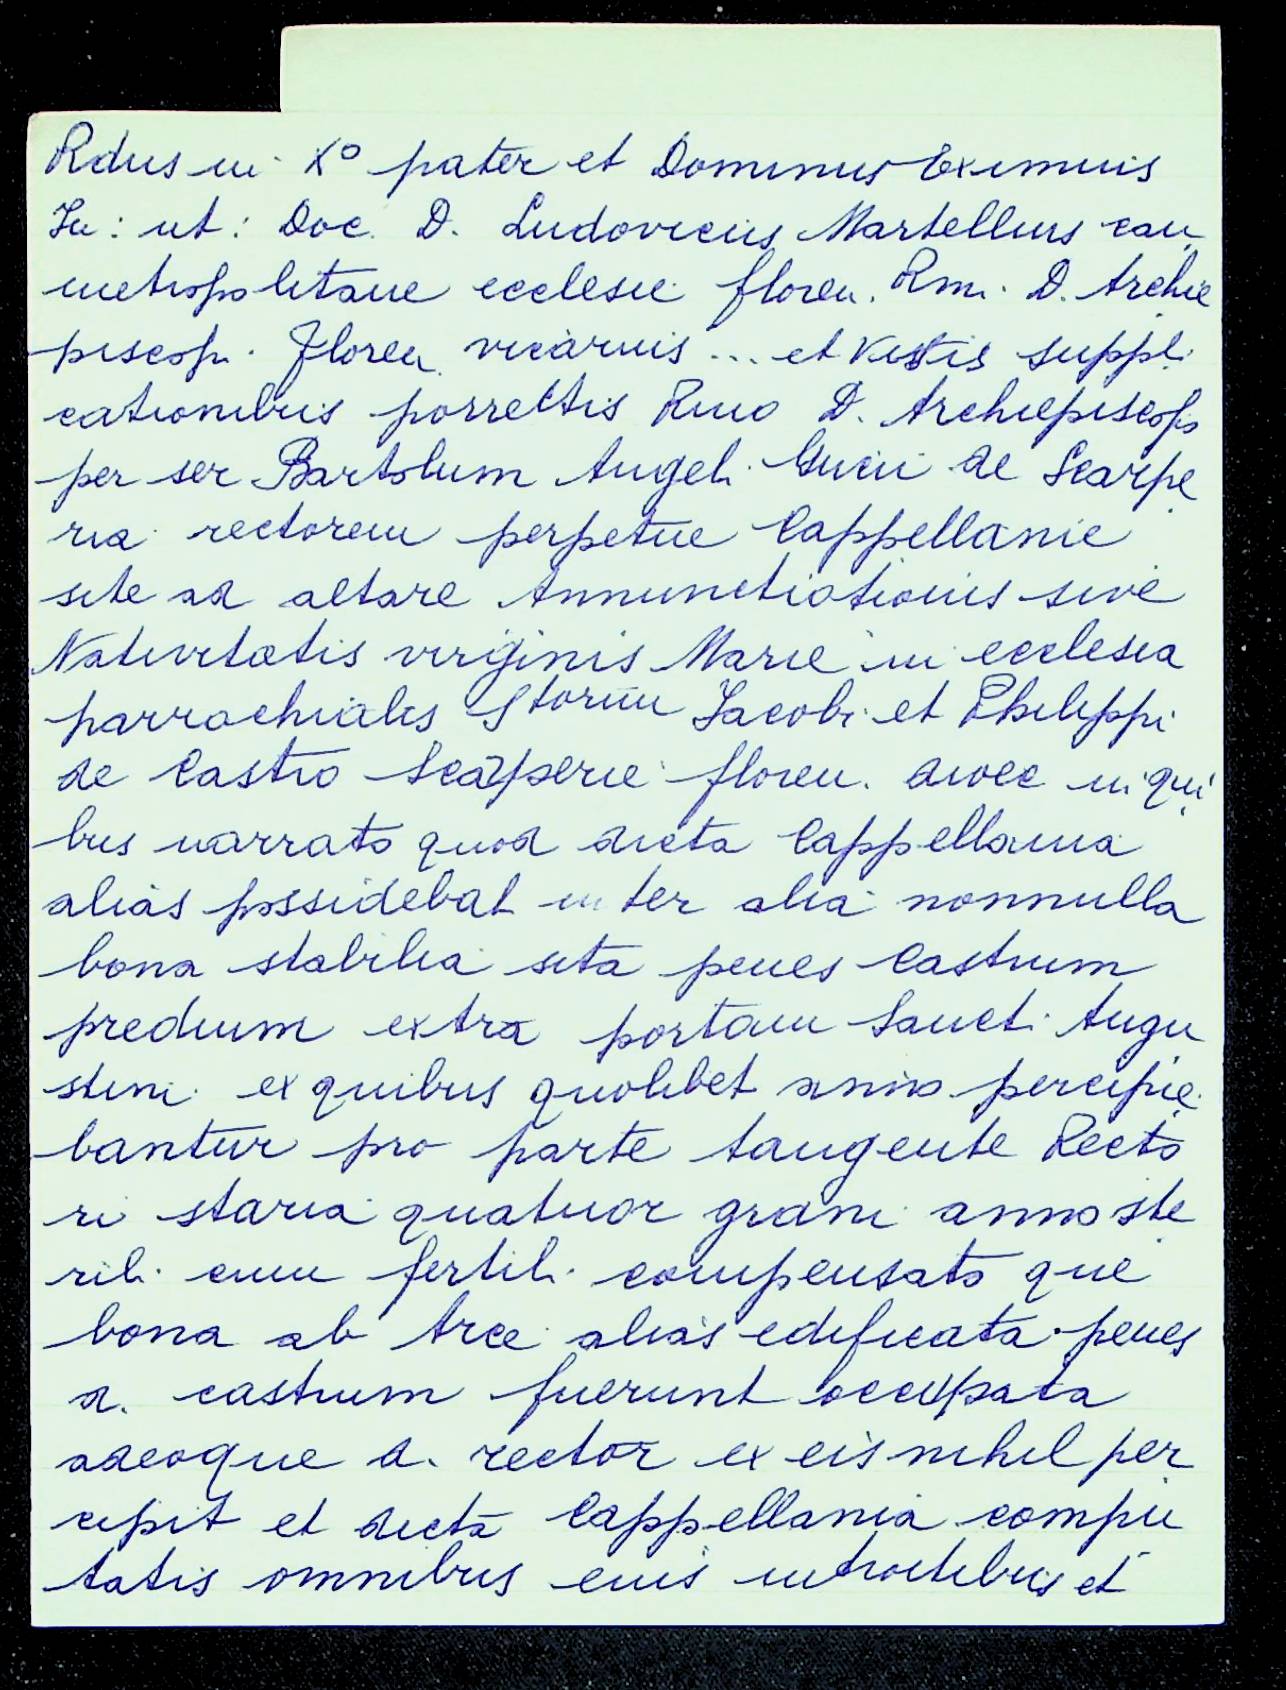 Rdus in Xº pater et Dominus Eximius
Iu: ut: Doc. D. Ludovicus Martellus can
metropolitane ecclesie floren. Rmi. D. Archie
piscop. Floren. vicarius ... et visis suppli
cationibus porrectis Rmo D. Archiepiscopo
per ser Bartolum Angeli Gucii de Scarpe
ria rectorem perpetue Cappellanie
site ad altare Annunctiationis sive
Nativitatis virginis Marie in ecclesia
parrochialis Storum Jacobi et Philippi
de Castro Scarperie floren. dioec in qui
bus narrato quod dicta Cappellania
alias possidebat inter alia nonnulla
bona stabilia sita penes Castrum
predium extra portam Sancti Augu
stini ex quibus quolibet anno percipie
bantur pro parte tangente Recto
ri staria quatuor grani anno ste
rili cum fertili compensato que
bona ab Arce alias edificata penes
d. castrum fuerunt occupata
adeoque d. rector ex eis nihil per
cipit et dicta Cappellania compu
tatis omnibus eius introitibus et